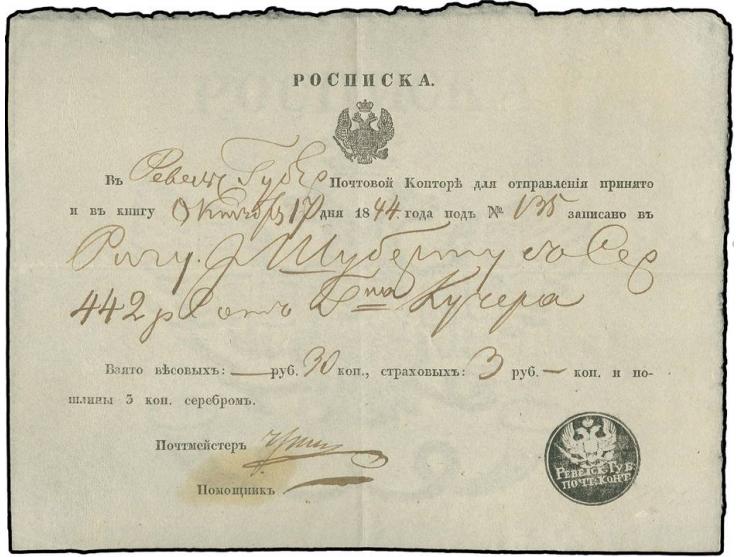 РОСПИСКА.
Въ Ревельс Губер Почтовой Конторѣ для отправленія принято
и въ книгу Октября 17 дня 1844 года подъ № 135 записано въ
Ригу. Г Шуберту со Сер
442 р отъ Кучера
Взято вѣсовыхъ: — руб. 30 коп., страховыхъ: 3 руб. — коп. и по-
шлины 3 коп. серебромъ.
Почтмейстеръ
Помощникъ
РЕВЕЛЬСК. ГУБ.
ПОЧТ. КОНТ.